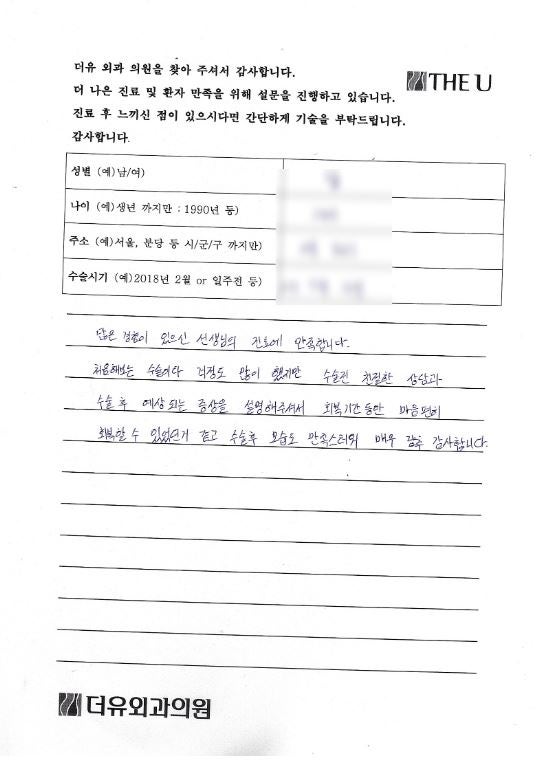 더유 외과 의원을 찾아 주셔서 감사합니다.
THE U
더 나은 진료 및 환자 만족을 위해 설문을 진행하고 있습니다.
진료 후 느끼신 점이 있으시다면 간단하게 기술을 부탁드립니다.
감사합니다.
성별 (예)남/여)
나이 (예)생년 까지만 : 1990년 등)
주소 (예)서울, 분당 등 시/군/구 까지만)
수술시기 (예)2018년 2월 or 일주전 등)
많은 경험이 있으신 선생님의 진료에 만족합니다.
처음해보는 수술이라 걱정도 많이 했지만 수술전 친절한 상담과
수술 후 예상되는 증상을 설명해주셔서 회복기간 동안 마음편히
회복할 수 있었던거 같고 수술후 모습도 만족스러워 매우 감사합니다
더유외과의원